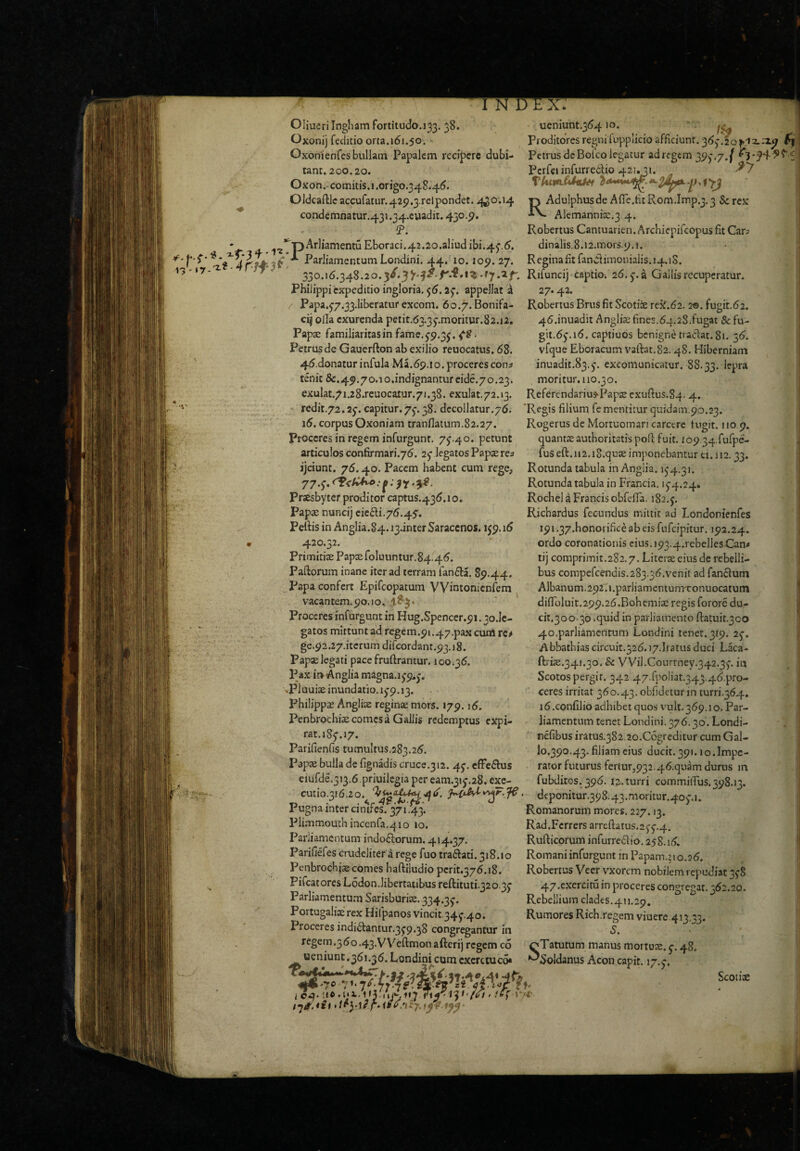 INDEX.
Oliueri Ingham fortitudo.133. 38.
Oxonij seditio orta.161.50.
Oxonienses bullam Papalem recipere dubi-
tant. 200. 20.
Oxon. comitis.1.origo.348.46.
Oldcastle accusatur.429.3.respondet. 430.14
condemnatur.431.34.euadit. 430.9.
P.
PArliamentū Eboraci.42.20.aliud ibi.45.6.
Parliamentum Londini. 44. 10. 109. 27.
330.16.348.20.
Philippi expeditio ingloria. 56. 25. appellat à
Papa.57.33.liberatur excom. 60.7. Bonifa-
cij ossa exurenda petit.63.35.moritur.82.12.
Papæ familiaritas in fame.59.35.
Petrus de Gauerston ab exilio reuocatus. 68.
46.donatur insula Mā.69.10. proceres con-
tēnit &.49.70.10.indignantur eidē.70.23.
exulat.71.28.reuocatur.71.38. exulat.72.13.
redit.72.25. capitur.75.38. decollatur.76.
16. corpus Oxoniam translatum.82.27.
Proceres in regem insurgunt. 75.40. petunt
articulos confirmari.76. 25 legatos Papæ re-
ijciunt. 76.40. Pacem habent cum rege,
77.5.
Præsbyter proditor captus.436.10.
Papæ nuncij eiecti.76.45.
Pestis in Anglia.84.13.inter Saracenos. 159.16
420.32.
Primitiæ Papæ soluuntur.84.46.
Pastorum inane iter ad terram sanctā. 89.44.
Papa confert Episcopatum VVintoniensem
vacantem.90.10.
Proceres insurgunt in Hug.Spencer.91.30.le-
gatos mittunt ad regem.91.47.pax cum re-
ge.92.27.iterum discordant.93.18.
Papæ legati pace frustrantur. 100.36.
Pax in Anglia magna.159.5.
Pluuiæ inundatio.159.13.
Philippæ Angliæ reginæ mors. 179. 16.
Penbrochiæ comes à Gallis redemptus expi-
rat.185.17.
Parisiensis tumultus.283.26.
Papæ bulla de signādis cruce.312. 45. effectus
eiusdē.313.6.priuilegia per eam.315.28. exe-
cutio.316.20.
Pugna inter ciniſes. 371.43.
Plimmouth incensa.410 10.
Parliamentum indoctorum. 414.37.
Parisiēses crudeliter à rege suo tractati. 318.10
Penbrochiæ comes hastiludio perit.376.18.
Piscatores Lōdon.libertatibus restituti.320 35
Parliamentum Sarisburiæ. 334.35.
Portugaliæ rex Hispanos vincit 345.40.
Proceres indictantur.359.38 congregantur in
regem.360.43.VVestmonasterij regem cō
ueniunt.361.36. Londini cum exercitu cō-
ueniunt.364 10.
Proditores regni supplicio afficiunt. 365.20
Petrus de Bosco legatur ad regem 395.7.
Persei insurrectio 421.31.
RAdulphus de Asse.fit Rom.Imp.3. 3 & rex
Alemanniæ.3 4.
Robertus Cantuarien.Archiepiscopus fit Car-
dinalis.8.12.mors.9.1.
Regina fit sanctimonialis.14.18.
Risuncij captio. 26.5.à Gallis recuperatur.
27. 42.
Robertus Brus fit Scotiæ rex.62. 20. fugit.62.
46.inuadit Angliæ fines.64.28.fugat & fu-
git.65.16. captiuos benignè tractat.81. 36.
vsque Eboracum vastat.82.48. Hiberniam
inuadit.83.5. excomunicatur. 88.33. lepra
moritur.110.30.
Referendarius Papæ exustus.84. 4.
Regis filium se mentitur quidam.90.23.
Rogerus de Mortuomari carcere fugit. 110 9.
quantæ authoritatis post fuit. 109 34.suspē-
sus est.112.18.quæ imponebantur ei.112. 33.
Rotunda tabula in Anglia. 154.31.
Rotunda tabula in Francia. 154.24.
Rochel à Francis obsessa. 182.5.
Richardus secundus mittit ad Londonienses
191.37.honorificè ab eis suscipitur. 192.24.
ordo coronationis eius.193.4.rebelles Can-
tij comprimit.282.7. Literæ eius de rebelli-
bus compescendis.283.36.venit ad sanctum
Albanum.292.1.parliamentum conuocatum
dissoluit.299.26.Bohemiæ regis sororē du-
cit.300.30.quid in parliamento statuit.300
40.parliamentum Londini tenet. 319. 25.
Abbathias circuit.326.17.Iratus duci Lāca-
striæ.341.30. & VVil.Courtney.342.35. in
Scotos pergit. 342 47.spoliat.343.46.pro-
ceres irritat 360.43. obsidetur in turri.364.
16.consilio adhibet quos vult.369.10. Par-
liamentum tenet Londini. 376.30. Londi-
nēsibus iratus.382 20.Cōgreditur cum Gal-
lo.390.43. filiam eius ducit.391.10.Impe-
rator futurus fertur,932.46.quàm durus in
subditos.396. 12.turri commissus.398.13.
deponitur.398.43.moritur.405.1.
Romanorum mores. 227. 13.
Rad.Ferrers arrestatus.255.4.
Rusticorum insurrectio.258.16.
Romani insurgunt in Papam.310.26.
Robertus Veer vxorem nobilem repudiat 358
47.exercitū in proceres congregat. 362.20.
Rebellium clades.411.29.
Rumores Rich.regem viuere 413.33.
S.
STatutum manus mortuæ. 5. 48.
Soldanus Acon capit. 17.5.
Scotiæ